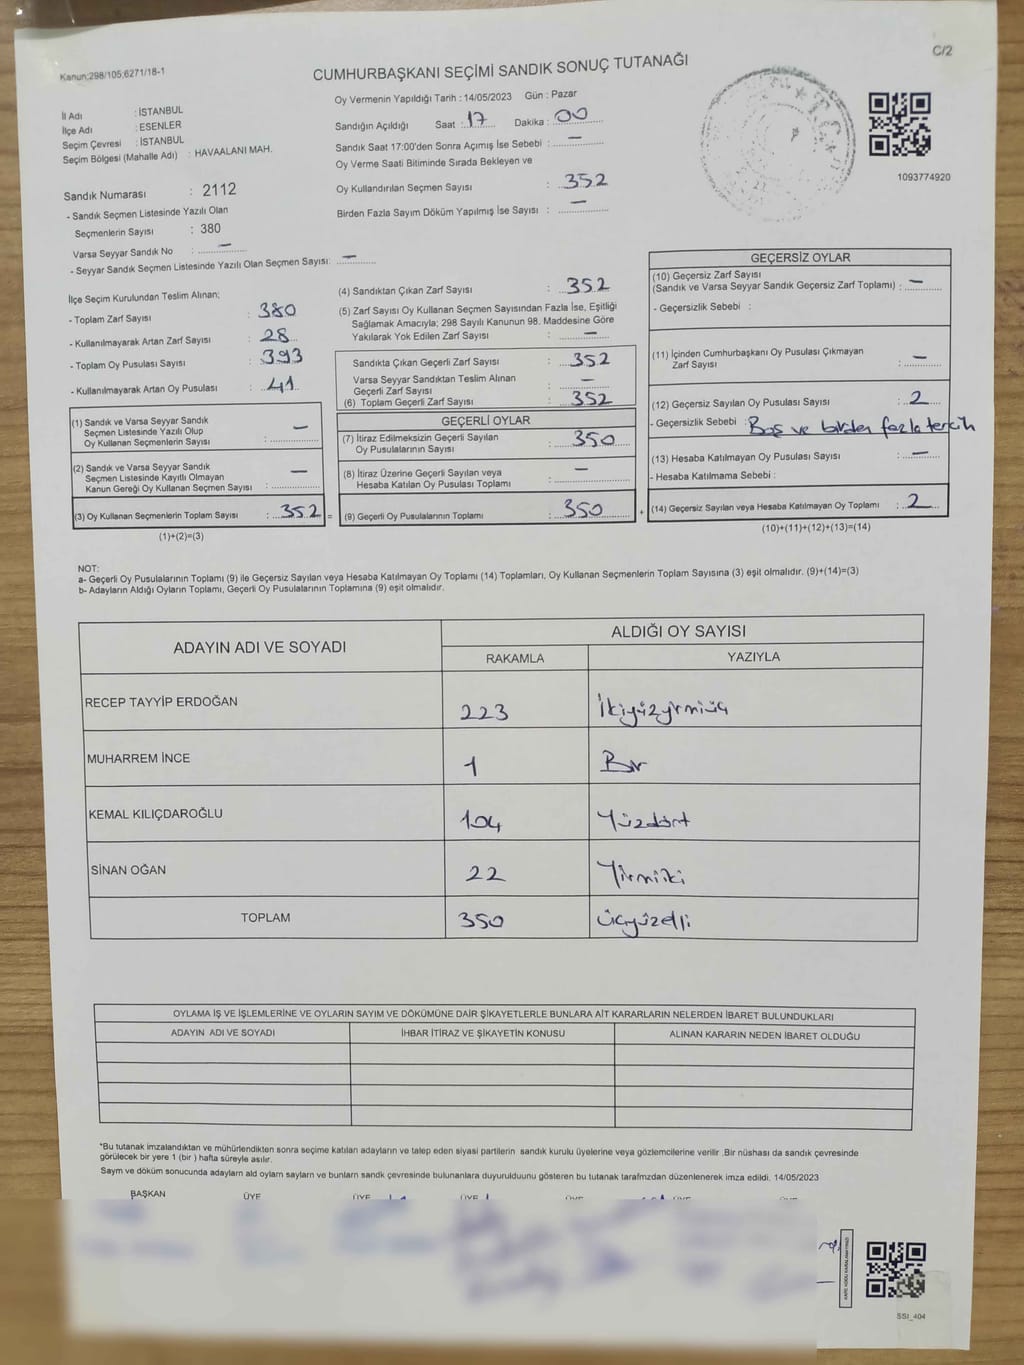 Kanun:298/105;6271/18-1
C/2
CUMHURBAŞKANI SEÇİMİ SANDIK SONUÇ TUTANAĞI
Oy Vermenin Yapıldığı Tarih : 14/05/2023 Gün : Pazar
İl Adı : İSTANBUL
İlçe Adı : ESENLER
Seçim Çevresi : İSTANBUL
Seçim Bölgesi (Mahalle Adı) : HAVAALANI MAH.
Sandığın Açıldığı Saat : 17 Dakika : 00
Sandık Saat 17:00'den Sonra Açımış İse Sebebi : —
Oy Verme Saati Bitiminde Sırada Bekleyen ve
Oy Kullandırılan Seçmen Sayısı : 352
Birden Fazla Sayım Döküm Yapılmış İse Sayısı : —
1093774920
Sandık Numarası : 2112
- Sandık Seçmen Listesinde Yazılı Olan
Seçmenlerin Sayısı : 380
Varsa Seyyar Sandık No : —
- Seyyar Sandık Seçmen Listesinde Yazılı Olan Seçmen Sayısı: —
İlçe Seçim Kurulundan Teslim Alınan;
- Toplam Zarf Sayısı : 380
- Kullanılmayarak Artan Zarf Sayısı : 28
- Toplam Oy Pusulası Sayısı : 393
- Kullanılmayarak Artan Oy Pusulası : 41
(1) Sandık ve Varsa Seyyar Sandık
Seçmen Listesinde Yazılı Olup
Oy Kullanan Seçmenlerin Sayısı : —
(2) Sandık ve Varsa Seyyar Sandık
Seçmen Listesinde Kayıtlı Olmayan
Kanun Gereği Oy Kullanan Seçmen Sayısı : —
(3) Oy Kullanan Seçmenlerin Toplam Sayısı : 352 =
(1)+(2)=(3)
(4) Sandıktan Çıkan Zarf Sayısı : 352
(5) Zarf Sayısı Oy Kullanan Seçmen Sayısından Fazla İse, Eşitliği
Sağlamak Amacıyla; 298 Sayılı Kanunun 98. Maddesine Göre
Yakılarak Yok Edilen Zarf Sayısı : —
Sandıkta Çıkan Geçerli Zarf Sayısı : 352
Varsa Seyyar Sandıktan Teslim Alınan
Geçerli Zarf Sayısı : —
(6) Toplam Geçerli Zarf Sayısı : 352
GEÇERLİ OYLAR
(7) İtiraz Edilmeksizin Geçerli Sayılan
Oy Pusulalarının Sayısı : 350
(8) İtiraz Üzerine Geçerli Sayılan veya
Hesaba Katılan Oy Pusulası Toplamı : —
(9) Geçerli Oy Pusulalarının Toplamı : 350 +
GEÇERSİZ OYLAR
(10) Geçersiz Zarf Sayısı
(Sandık ve Varsa Seyyar Sandık Geçersiz Zarf Toplamı) : —
- Geçersizlik Sebebi :
(11) İçinden Cumhurbaşkanı Oy Pusulası Çıkmayan
Zarf Sayısı : —
(12) Geçersiz Sayılan Oy Pusulası Sayısı : 2
- Geçersizlik Sebebi : Boş ve birden fazla tercih
(13) Hesaba Katılmayan Oy Pusulası Sayısı : —
- Hesaba Katılmama Sebebi :
(14) Geçersiz Sayılan veya Hesaba Katılmayan Oy Toplamı : 2
(10)+(11)+(12)+(13)=(14)
NOT:
a- Geçerli Oy Pusulalarının Toplamı (9) ile Geçersiz Sayılan veya Hesaba Katılmayan Oy Toplamı (14) Toplamları, Oy Kullanan Seçmenlerin Toplam Sayısına (3) eşit olmalıdır. (9)+(14)=(3)
b- Adayların Aldığı Oyların Toplamı, Geçerli Oy Pusulalarının Toplamına (9) eşit olmalıdır.
ADAYIN ADI VE SOYADI
ALDIĞI OY SAYISI
RAKAMLA YAZIYLA
RECEP TAYYİP ERDOĞAN 223 İkiyüzyirmiüç
MUHARREM İNCE 1 Bir
KEMAL KILIÇDAROĞLU 104 Yüzdört
SİNAN OĞAN 22 Yirmiiki
TOPLAM 350 üçyüzelli
OYLAMA İŞ VE İŞLEMLERİNE VE OYLARIN SAYIM VE DÖKÜMÜNE DAİR ŞİKAYETLERLE BUNLARA AİT KARARLARIN NELERDEN İBARET BULUNDUKLARI
ADAYIN ADI VE SOYADI İHBAR İTİRAZ VE ŞİKAYETİN KONUSU ALINAN KARARIN NEDEN İBARET OLDUĞU
*Bu tutanak imzalandıktan ve mühürlendikten sonra seçime katılan adayların ve talep eden siyasi partilerin sandık kurulu üyelerine veya gözlemcilerine verilir .Bir nüshası da sandık çevresinde
görülecek bir yere 1 (bir ) hafta süreyle asılır.
Sayım ve döküm sonucunda adayların ald oyların sayları ve bunların sandk çevresinde bulunanlara duyurulduunu gösteren bu tutanak tarafmzdan düzenlenerek imza edildi. 14/05/2023
BAŞKAN ÜYE ÜYE ÜYE ÜYE ÜYE
SSI_404